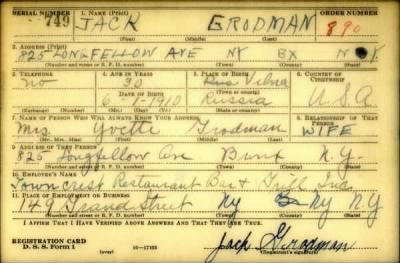 SERIAL NUMBER 1. NAME (Print) ORDER NUMBER
749 JACK GRODMAN 890
(First) (Middle) (Last)
2. ADDRESS (Print)
825 LONGFELLOW AVE NY BX N Y
(Number and street or R. F. D. number) (Town) (County) (State)
3. TELEPHONE 4. AGE IN YEARS 5. PLACE OF BIRTH 6. COUNTRY OF CITIZENSHIP
no 30 Vilna
DATE OF BIRTH (Town or county)
6 1 1910 Russia U.S.A
(Exchange) (Number) (Mo.) (Day) (Yr.) (State or country)
7. NAME OF PERSON WHO WILL ALWAYS KNOW YOUR ADDRESS 8. RELATIONSHIP OF THAT PERSON
Mrs. Yvette Grodman WIFE
(Mr., Mrs., Miss) (First) (Middle) (Last)
9. ADDRESS OF THAT PERSON
825 Longfellow Ave Bronx N.Y.
(Number and street or R. F. D. number) (Town) (County) (State)
10. EMPLOYER'S NAME
Towncrest Restaurant Bar & Grill Inc.
11. PLACE OF EMPLOYMENT OR BUSINESS
149 Grand Street Ny Ny NY
(Number and street or R. F. D. number) (Town) (County) (State)
I AFFIRM THAT I HAVE VERIFIED ABOVE ANSWERS AND THAT THEY ARE TRUE.
REGISTRATION CARD
D. S. S. Form 1 16—17105 Jack Grodman
(Registrant's signature)